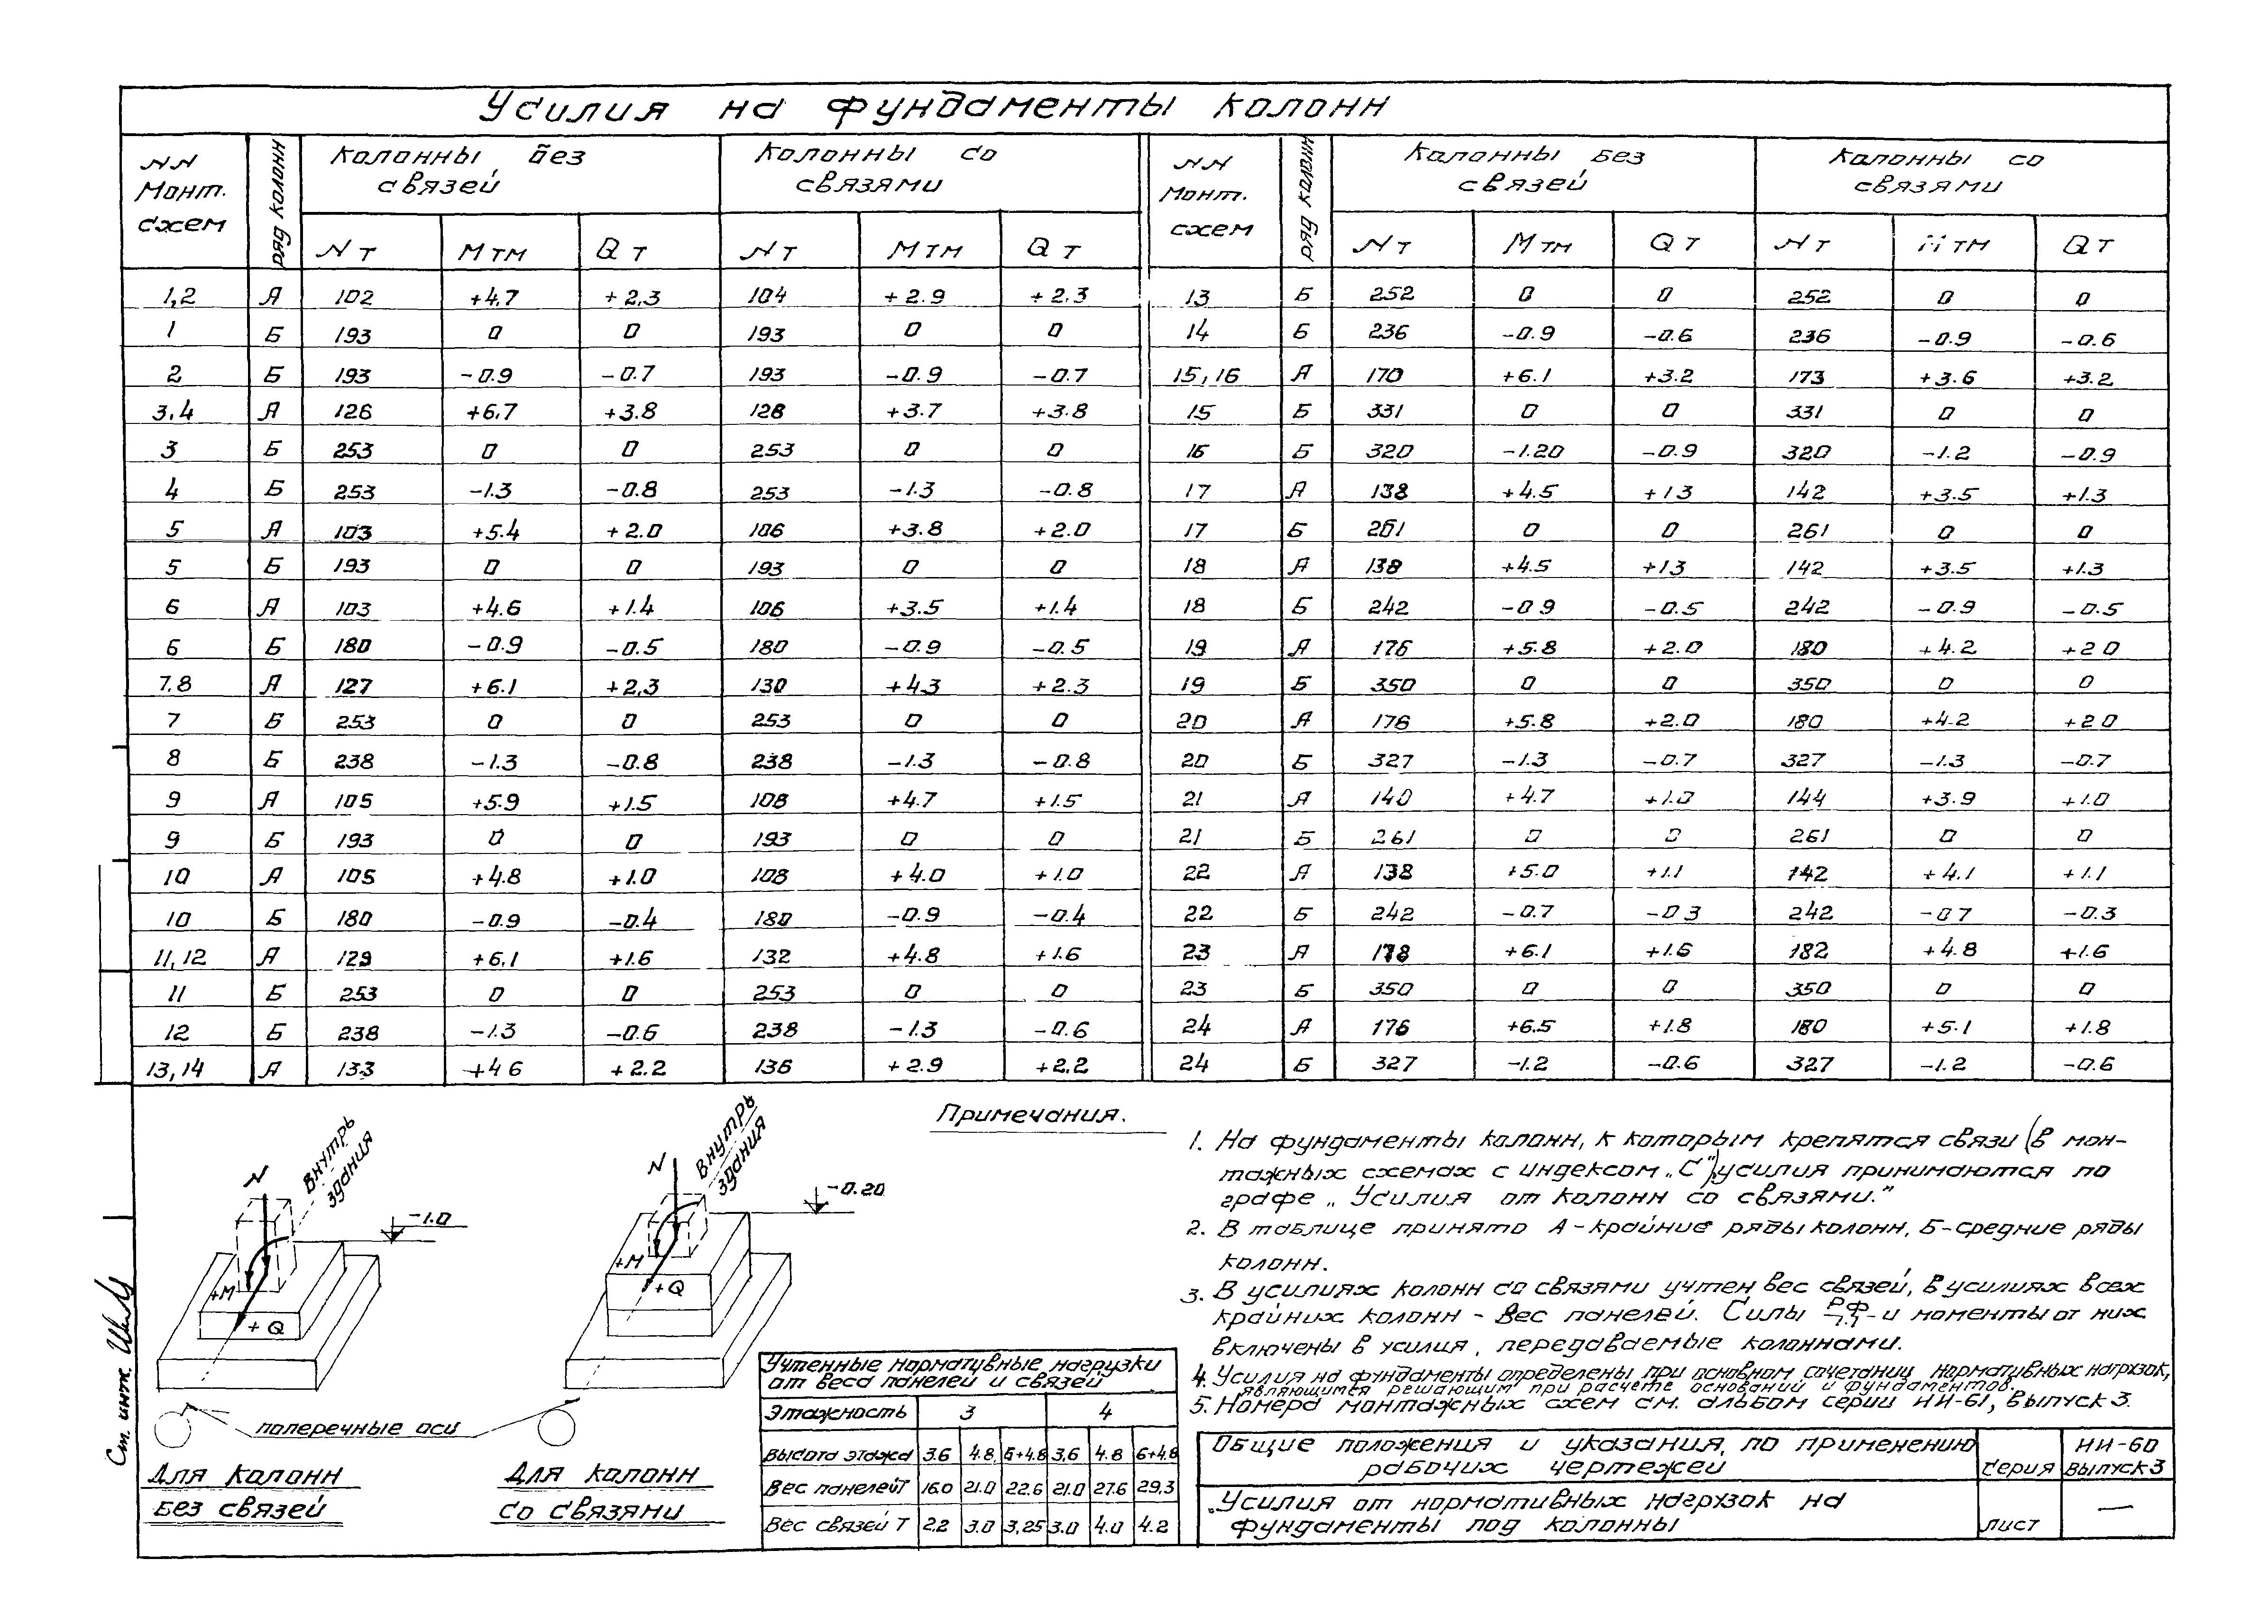 Усилия на фундаменты колонн
NN Монт. схем | ряд колонн | Колонны без связей | Колонны со связями | NN Монт. схем | ряд колонн | Колонны без связей | Колонны со связями
N т | M тм | Q т | N т | M тм | Q т | N т | M тм | Q т | N т | M тм | Q т
1,2 | А | 102 | +4.7 | +2,3 | 104 | +2.9 | +2.3 | 13 | Б | 252 | 0 | 0 | 252 | 0 | 0
1 | Б | 193 | 0 | 0 | 193 | 0 | 0 | 14 | Б | 236 | -0.9 | -0.6 | 236 | -0.9 | -0.6
2 | Б | 193 | -0.9 | -0.7 | 193 | -0.9 | -0.7 | 15,16 | А | 170 | +6.1 | +3.2 | 173 | +3.6 | +3.2
3,4 | А | 126 | +6.7 | +3.8 | 128 | +3.7 | +3.8 | 15 | Б | 331 | 0 | 0 | 331 | 0 | 0
3 | Б | 253 | 0 | 0 | 253 | 0 | 0 | 16 | Б | 320 | -1.20 | -0.9 | 320 | -1.2 | -0.9
4 | Б | 253 | -1.3 | -0.8 | 253 | -1.3 | -0.8 | 17 | А | 138 | +4.5 | +1 3 | 142 | +3.5 | +1.3
5 | А | 103 | +5.4 | +2.0 | 106 | +3.8 | +2.0 | 17 | Б | 261 | 0 | 0 | 261 | 0 | 0
5 | Б | 193 | 0 | 0 | 193 | 0 | 0 | 18 | А | 138 | +4.5 | +1 3 | 142 | +3.5 | +1.3
6 | А | 103 | +4.6 | +1.4 | 106 | +3.5 | +1.4 | 18 | Б | 242 | -0 9 | -0.5 | 242 | -0.9 | -0.5
6 | Б | 180 | -0.9 | -0.5 | 180 | -0.9 | -0.5 | 19 | А | 176 | +5.8 | +2.0 | 180 | +4.2 | +2 0
7.8 | А | 127 | +6.1 | +2,3 | 130 | +4.3 | +2.3 | 19 | Б | 350 | 0 | 0 | 350 | 0 | 0
7 | Б | 253 | 0 | 0 | 253 | 0 | 0 | 20 | А | 176 | +5.8 | +2.0 | 180 | +4.2 | +2 0
8 | Б | 238 | -1.3 | -0.8 | 238 | -1.3 | -0.8 | 20 | Б | 327 | -1.3 | -0.7 | 327 | -1.3 | -0.7
9 | А | 105 | +5.9 | +1.5 | 108 | +4.7 | +1.5 | 21 | А | 140 | +4.7 | +1.0 | 144 | +3.9 | +1.0
9 | Б | 193 | 0 | 0 | 193 | 0 | 0 | 21 | Б | 261 | 0 | 0 | 261 | 0 | 0
10 | А | 105 | +4.8 | +1.0 | 108 | +4.0 | +1.0 | 22 | А | 138 | +5.0 | +1.1 | 142 | +4.1 | +1.1
10 | Б | 180 | -0.9 | -0.4 | 180 | -0.9 | -0.4 | 22 | Б | 242 | -0.7 | -0 3 | 242 | -0 7 | -0.3
11,12 | А | 129 | +6.1 | +1.6 | 132 | +4.8 | +1.6 | 23 | А | 178 | +6.1 | +1.6 | 182 | +4.8 | +1.6
11 | Б | 253 | 0 | 0 | 253 | 0 | 0 | 23 | Б | 350 | 0 | 0 | 350 | 0 | 0
12 | Б | 238 | -1.3 | -0.6 | 238 | -1.3 | -0.6 | 24 | А | 176 | +6.5 | +1.8 | 180 | +5.1 | +1.8
13,14 | А | 133 | +4 6 | +2.2 | 136 | +2.9 | +2.2 | 24 | Б | 327 | -1.2 | -0.6 | 327 | -1.2 | -0.6
N
внутрь
здания
-1.0
+M
+Q
N
внутрь
здания
-0.20
+M
+Q
поперечные оси
Для колонн
без связей
Для колонн
со связями
Ст. инж.
Примечания.
1. На фундаменты колонн, к которым крепятся связи (в мон-
тажных схемах с индексом „С") усилия принимаются по
графе „Усилия от колонн со связями."
2. В таблице принято А-крайние ряды колонн, Б-средние ряды
колонн.
3. В усилиях колонн со связями учтен вес связей, в усилиях всех
крайних колонн - вес панелей. Силы и моменты от них
включены в усилия, передаваемые колоннами.
4. Усилия на фундаменты определены при основном сочетании нормативных нагрузок,
являющимся решающим при расчете оснований и фундаментов.
5. Номера монтажных схем см. альбом серии ИИ-61, Выпуск 3.
Учтенные нормативные нагрузки
от веса панелей и связей
Этажность | 3 | 4
Высота этажа | 3.6 | 4.8 | 6+4.8 | 3,6 | 4.8 | 6+4.8
Вес панелей Т | 16.0 | 21.0 | 22.6 | 21.0 | 27.6 | 29,3
Вес связей Т | 2.2 | 3.0 | 3,25 | 3.0 | 4.0 | 4.2
Общие положения и указания, по применению
рабочих чертежей
серия
ИИ-60
Выпуск 3
Усилия от нормативных нагрузок на
фундаменты под колонны
лист
—